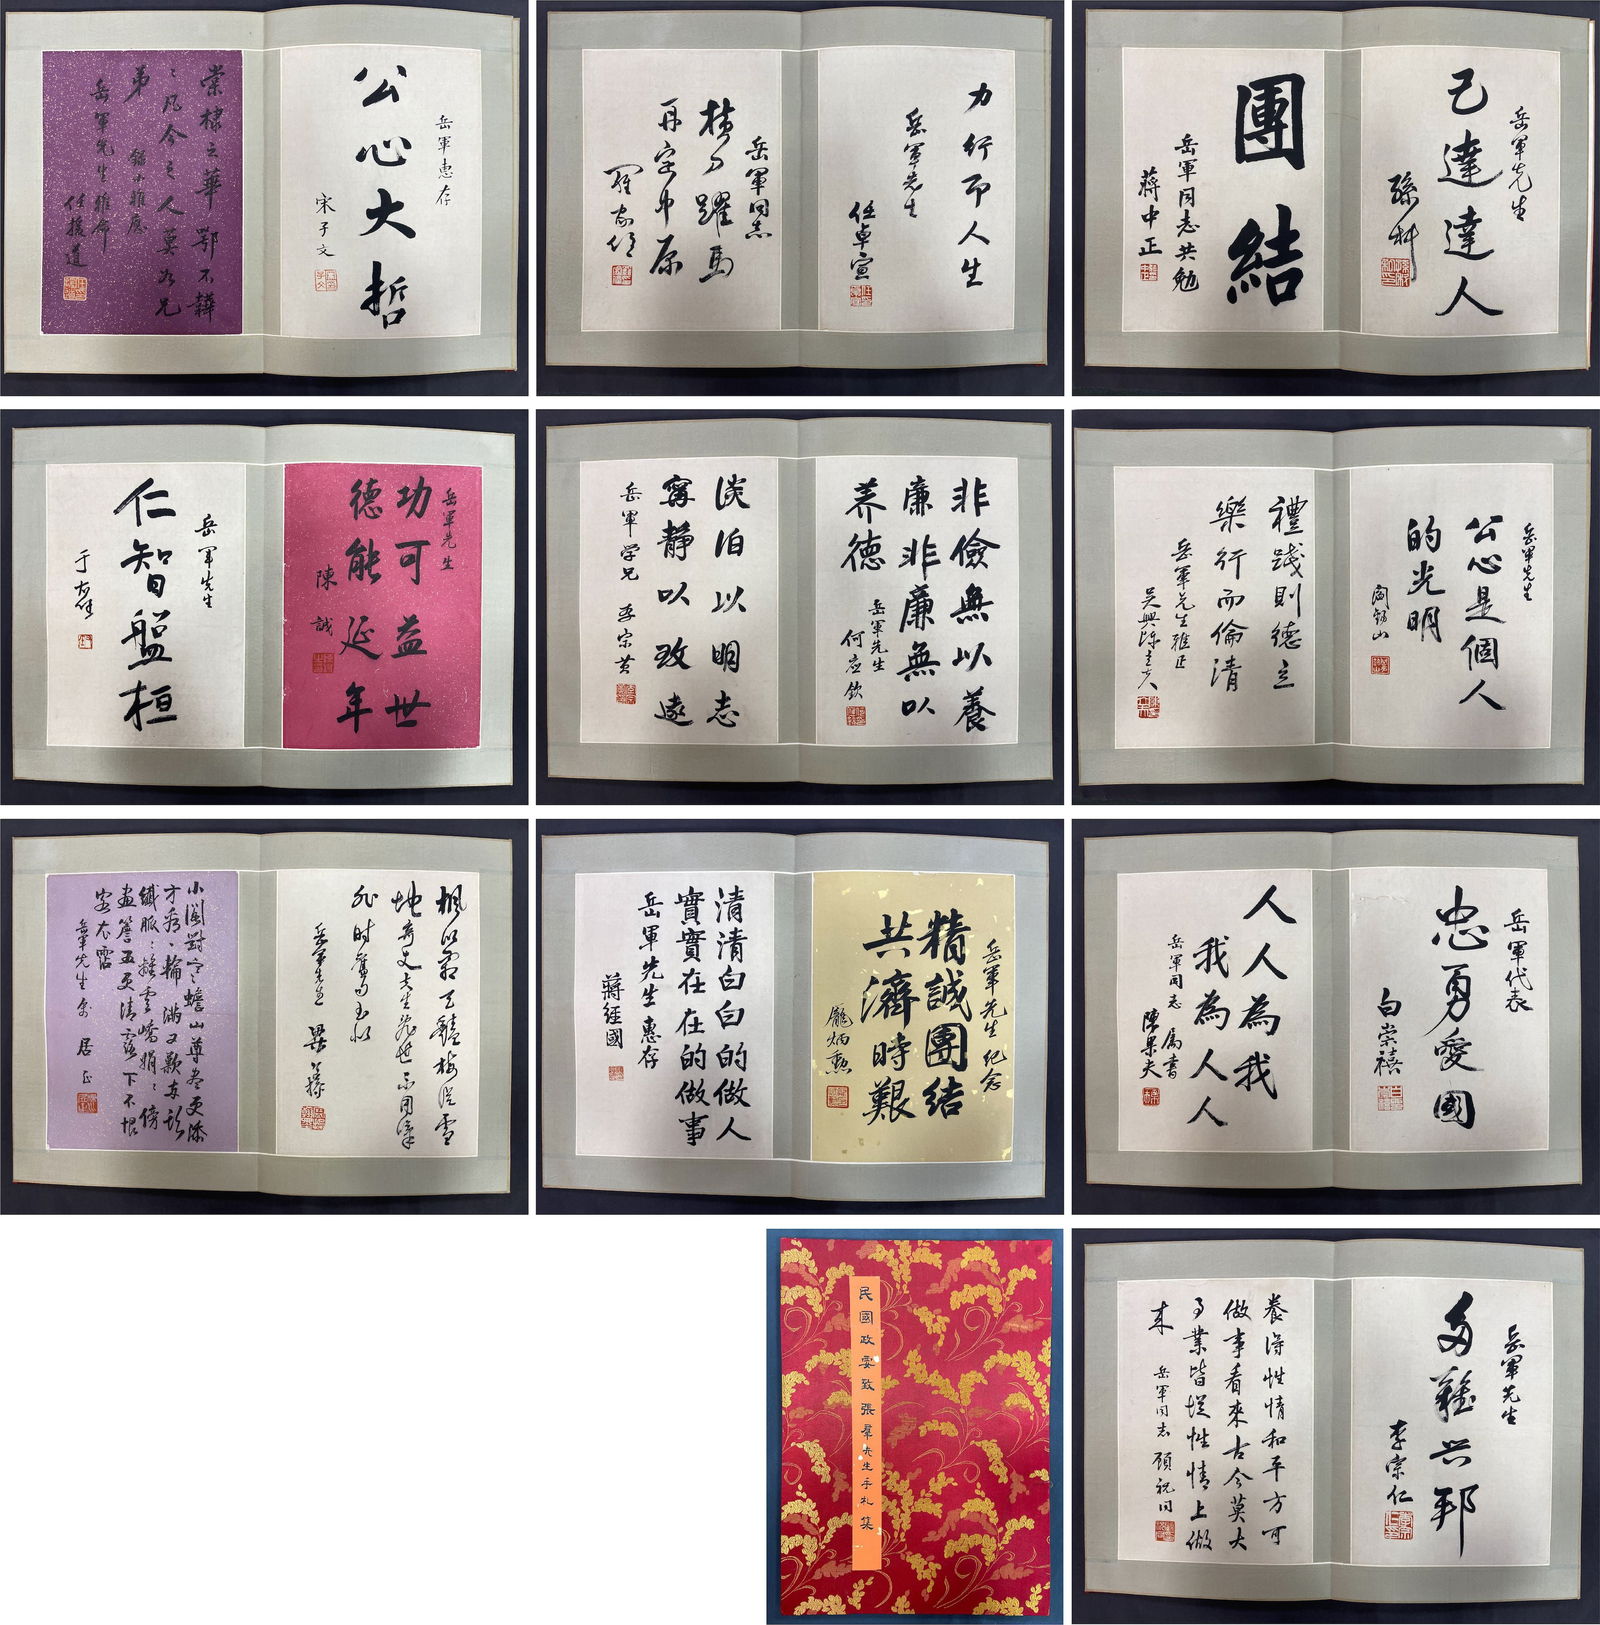 岳軍先生
己達達人
孫科
團結
岳軍同志共勉
蔣中正
力行即人生
岳軍先生
任卓宣
岳軍同志
橫刀躍馬
再定中原
羅家倫
岳軍惠存
公心大哲
宋子文
棠棣之華鄂不韡
韡凡今之人莫如兄
弟
岳軍先生雅命
任援道
岳軍先生
公心是個人
的光明
閻錫山
禮踐則德立
樂行而倫清
岳軍先生雅正
吳興陳立夫
非儉無以養
廉非廉無以
养德
岳軍先生
何应欽
淡泊以明志
寧靜以致遠
岳軍学兄
李宗黃
岳軍先生
功可益世
德能延年
陳誠
岳軍先生
仁智盤桓
于右任
岳軍代表
忠勇愛國
白崇禧
人人為我
我為人人
岳軍同志 属書
陳果夫
岳軍先生紀念
精誠團結
共濟時艱
龐炳勳
清清白白的做人
實實在在的做事
岳軍先生惠存
蔣經國
岳軍先生
岳軍先生
居正
岳軍先生
多難興邦
李宗仁
養得性情和平方可
做事看來古今莫大
事業皆從性情上做
来
岳軍同志 顧祝同
民國政要致張羣先生手札集